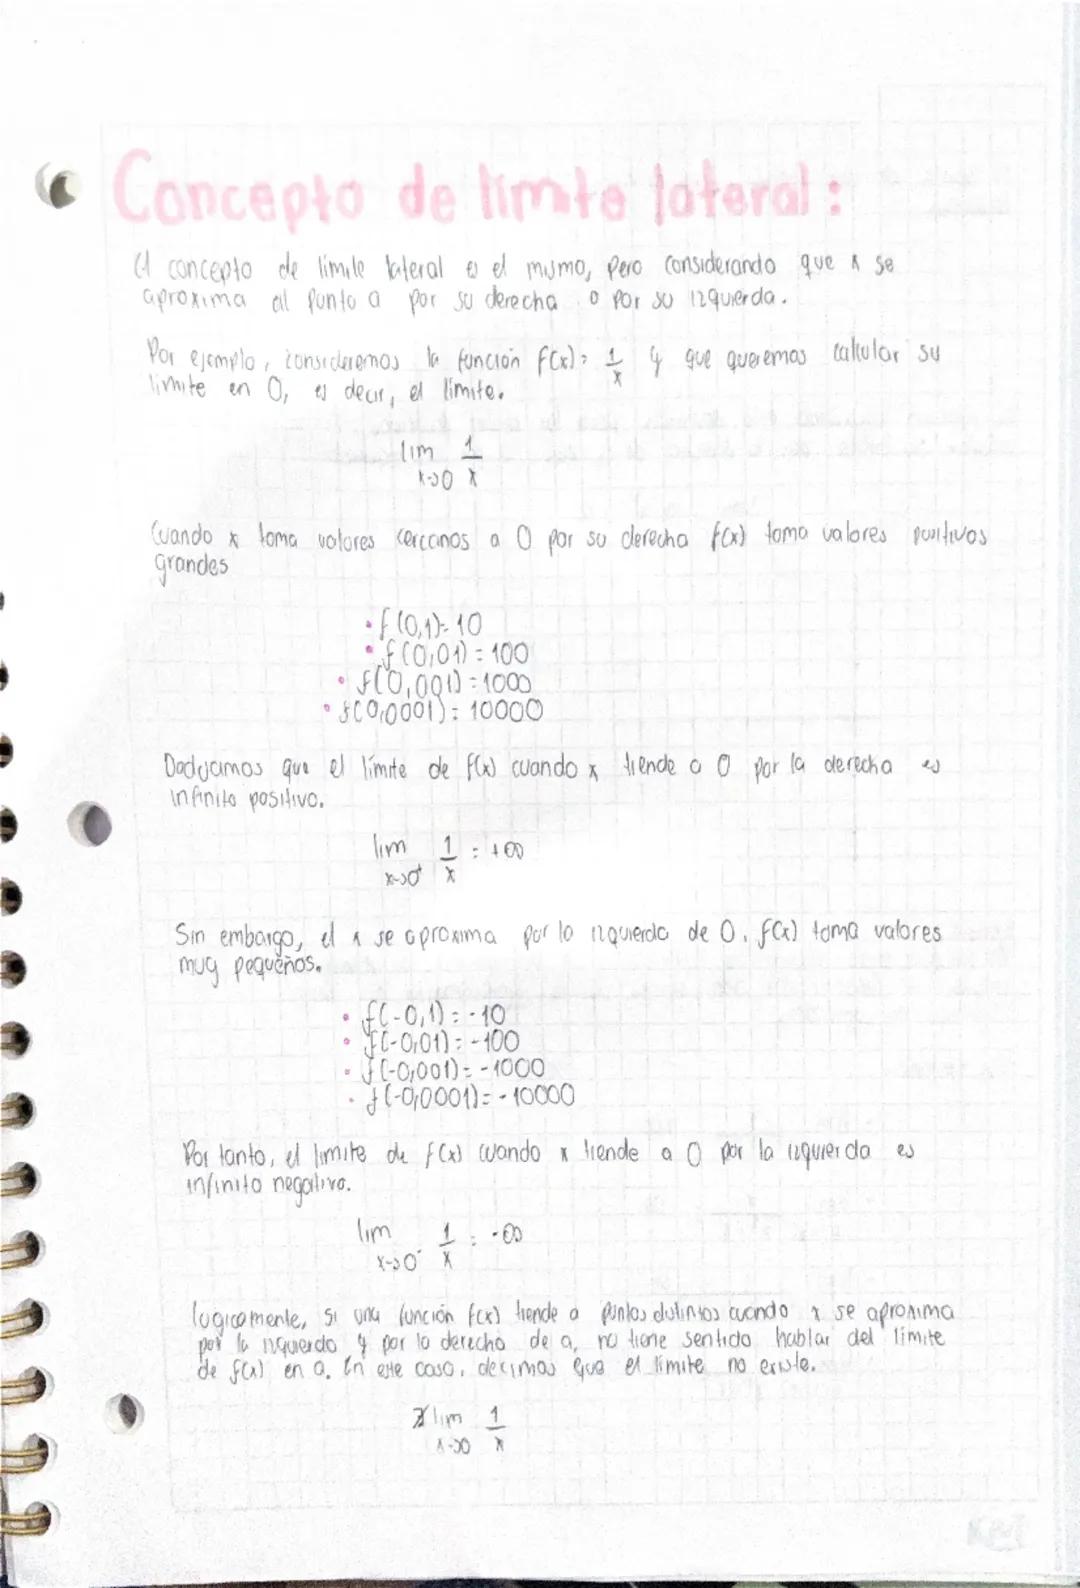 Concepto de límite lateral:
El concepto de límite lateral es el mismo, pero considerando que x se
aproxima al punto a por su derecha o por su izquierda.
Por ejemplo, consideremos la función f(x) = 1/x y que queremos calcular su
límite en 0, es decir, el límite.
lim 1/x
x→0
Cuando x toma valores cercanos a 0 por su derecha f(x) toma valores positivos
grandes
• f(0,1) = 10
• f(0,01) = 100
• f(0,001) = 1000
• f(0,0001) = 10000
que el límite de f(x) cuando x tiende a 0 por la derecha es
infinito positivo.
lim 1/x = +∞
x→0⁺
Sin embargo, el x se aproxima por la izquierda de 0, f(x) toma valores
muy pequeños.
• f(-0,1) = -10
• f(-0,01) = -100
• f(-0,001) = -1000
• f(-0,0001) = -10000
Por tanto, el límite de f(x) cuando x tiende a 0 por la izquierda es
infinito negativo.
lim 1/x = -∞
x→0⁻
Logicamente, si una función f(x) tiende a puntos distintos cuando x se aproxima
por la izquierda y por la derecha de a, no tiene sentido hablar del límite
de f(x) en a. En este caso, decimos que el límite no existe.
∄ lim 1/x
x→0